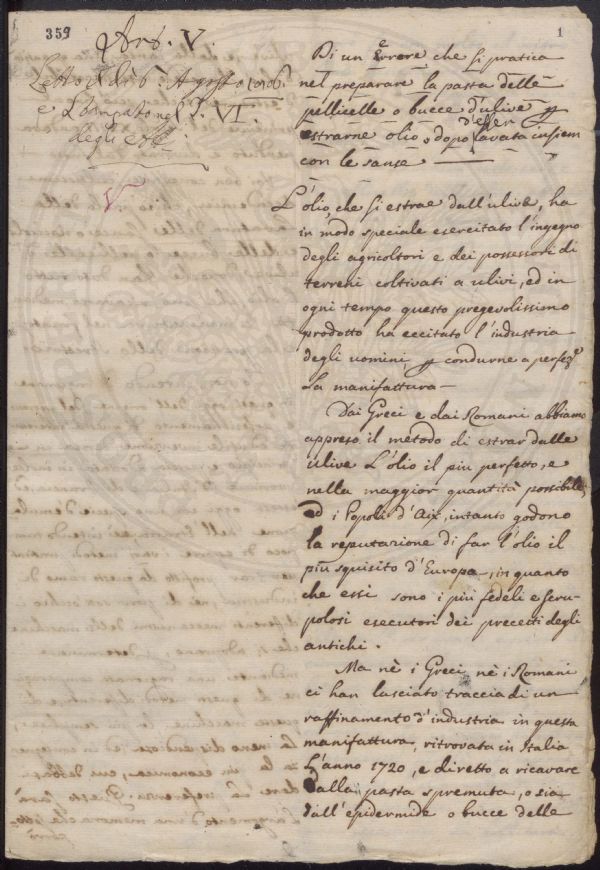 359
1
Art. V.
Letto adì 6. Agosto
e Stampato nel T. VI.
degli Atti
V
Di un Errore che si pratica
nel preparare la pasta delle
pellicelle o bucce d'ulive p
estrarne olio, dopo d'esser lavata insiem
con le sanse
L'olio, che si estrae dall'ulive, ha
in modo speciale esercitato l'ingegno
degli agricoltori e dei possessori di
terreni coltivati a ulivi, ed in
ogni tempo questo pregevolissimo
prodotto ha eccitato l'industria
degli uomini p condurne a perfez.e
la manifattura —
Dai Greci e dai Romani abbiamo
appreso il metodo di estrar dalle
ulive l'olio il piu perfetto, e
nella maggior quantità possibile,
ed i Popoli d'Aix, intanto godono
la reputazione di far l'olio il
più squisito d'Europa, in quanto
che essi sono i più fedeli e scru-
polosi esecutori dei precetti degli
antichi.
Ma nè i Greci nè i Romani
ci han lasciato traccia di un
raffinamento d'industria in questa
manifattura, ritrovata in Italia
l'anno 1720, e diretto a ricavare
dalla pasta spremuta, o sia
dall'epidermide o bucce delle